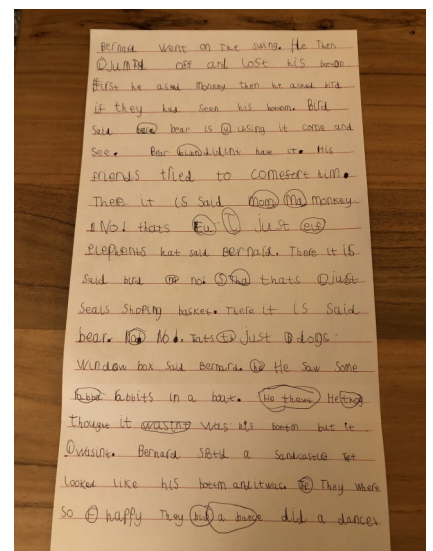 Bernard went on the swing. He Then
Jumpd off and lost his bottom
First he asked monkey then he asked bird
if they had seen his bottom. Bird
Said bear is using it come and
See. Bear didint have it. His
friends tried to comefort him.
There it is Said monkey
No! thats just
elephents hat said Bernard. There it is
Said bird no. thats just
Seals Shoping basket. There it is Said
bear. No!. Tats just dogs
window box Said Bernard. He Saw Some
rabbits in a boat. He
thought it was his bottm but it
wasint. Bernard Spotid a Sandcastle
looked like his bottm and it was. They where
So happy They did a dance.